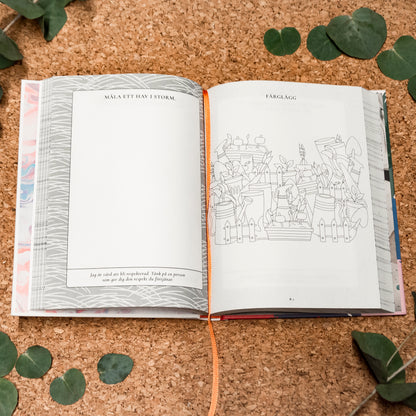 MÅLA ETT HAV I STORM.
Jag är värd att bli respekterad. Tänk på en person
som ger dig den respekt du förtjänar.
FÄRGLÄGG